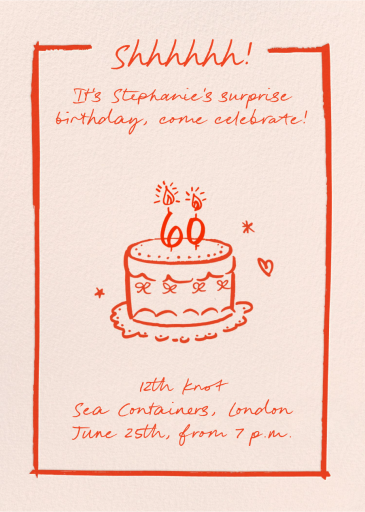 Shhhhhh!
It's Stephanie's surprise
birthday, come celebrate!
60
12th Knot
Sea Containers, London
June 25th, from 7 p.m.